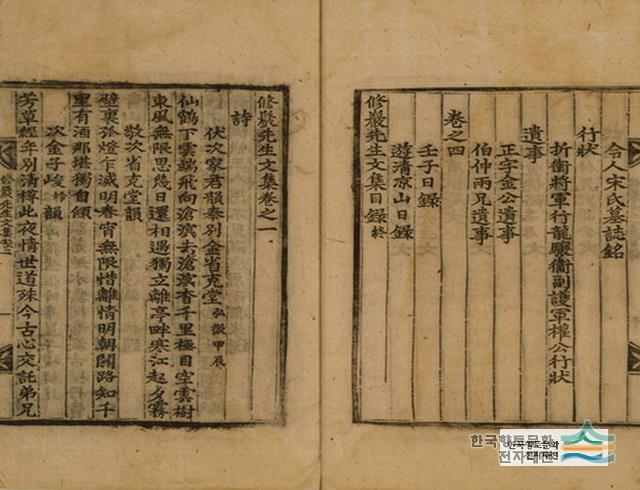 令人宋氏墓誌銘
行狀
折衝將軍行龍驤衛副護軍權公行狀
遺事
正字金公遺事
伯仲兩兄遺事
卷之四
壬子日錄
遊清凉山日錄
修巖先生文集目錄終
修巖先生文集卷之一
詩
伏次家君韻奉別金省克堂
仙鶴下雲端飛向滄溟去滄溟杳千里極目空雲樹
東風無限思幾日還相遇獨立離亭畔寒江起夕霧
敬次省克堂韻
壁裏孤燈乍滅明春宵無限惜離情明朝關路知千
里有酒那堪獨自傾
次金子峻韻
芳草經年別清樽此夜情世道殊今古心交託弟兄
修巖先生文集卷之一
한국향토문화
전자대전
한국향토문화
전자대전